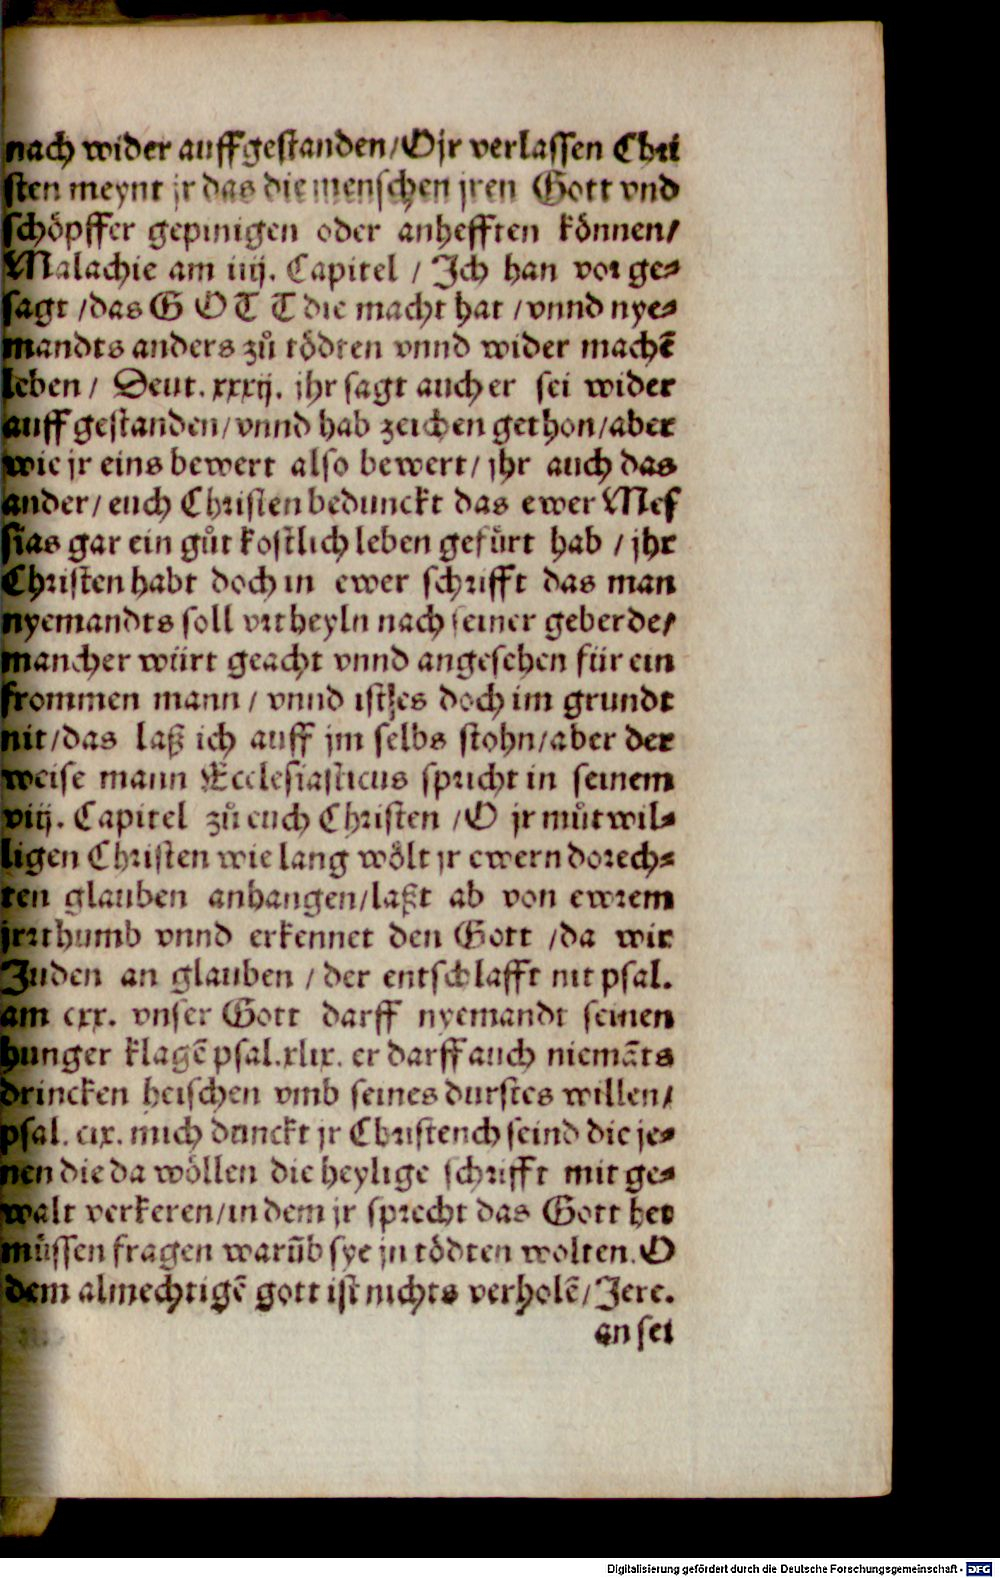 nach wider auffgestanden/O jr verlassen Chri
sten meynt jr das die menschen jren Gott vnd
schöpffer gepinigen oder anhefften können/
Malachie am iiij. Capitel / Ich han vor ge⸗
sagt /das G O T T die macht hat /vnnd nye⸗
mandts anders zů tödten vnnd wider machē
leben / Deut. xxxij. ihr sagt auch er sei wider
auff gestanden/vnnd hab zeichen gethon/aber
wie jr eins bewert also bewert/ jhr auch das
ander/ euch Christen bedunckt das ewer Mes
sias gar ein gůt kostlich leben gefürt hab / jhr
Christen habt doch in ewer schrifft das man
nyemandts soll vrtheyln nach seiner geberde/
mancher würt geacht vnnd angesehen für ein
frommen mann / vnnd ist es doch im grundt
nit/das laß ich auff jm selbs stohn/aber der
weise mann Ecclesiasticus spricht in seinem
viij. Capitel zů euch Christen /O jr můtwil⸗
ligen Christen wie lang wölt jr ewern dorech⸗
ten glauben anhangen/laßt ab von ewrem
jrrthumb vnnd erkennet den Gott /da wir
Juden an glauben /der entschlafft nit psal.
am cxx. vnser Gott darff nyemandt seinen
hunger klagē psal.xlix. er darff auch niemāts
drincken heischen vmb seines durstes willen/
psal. cix. mich dunckt jr Christen ich seind die je⸗
nen die da wöllen die heylige schrifft mit ge⸗
walt verkeren/in dem jr sprecht das Gott het
müssen fragen warūb sye jn tödten wolten. O
dem almechtigē gott ist nichts verholē/ Jere.
an sei
Digitalisierung gefördert durch die Deutsche Forschungsgemeinschaft - DFG